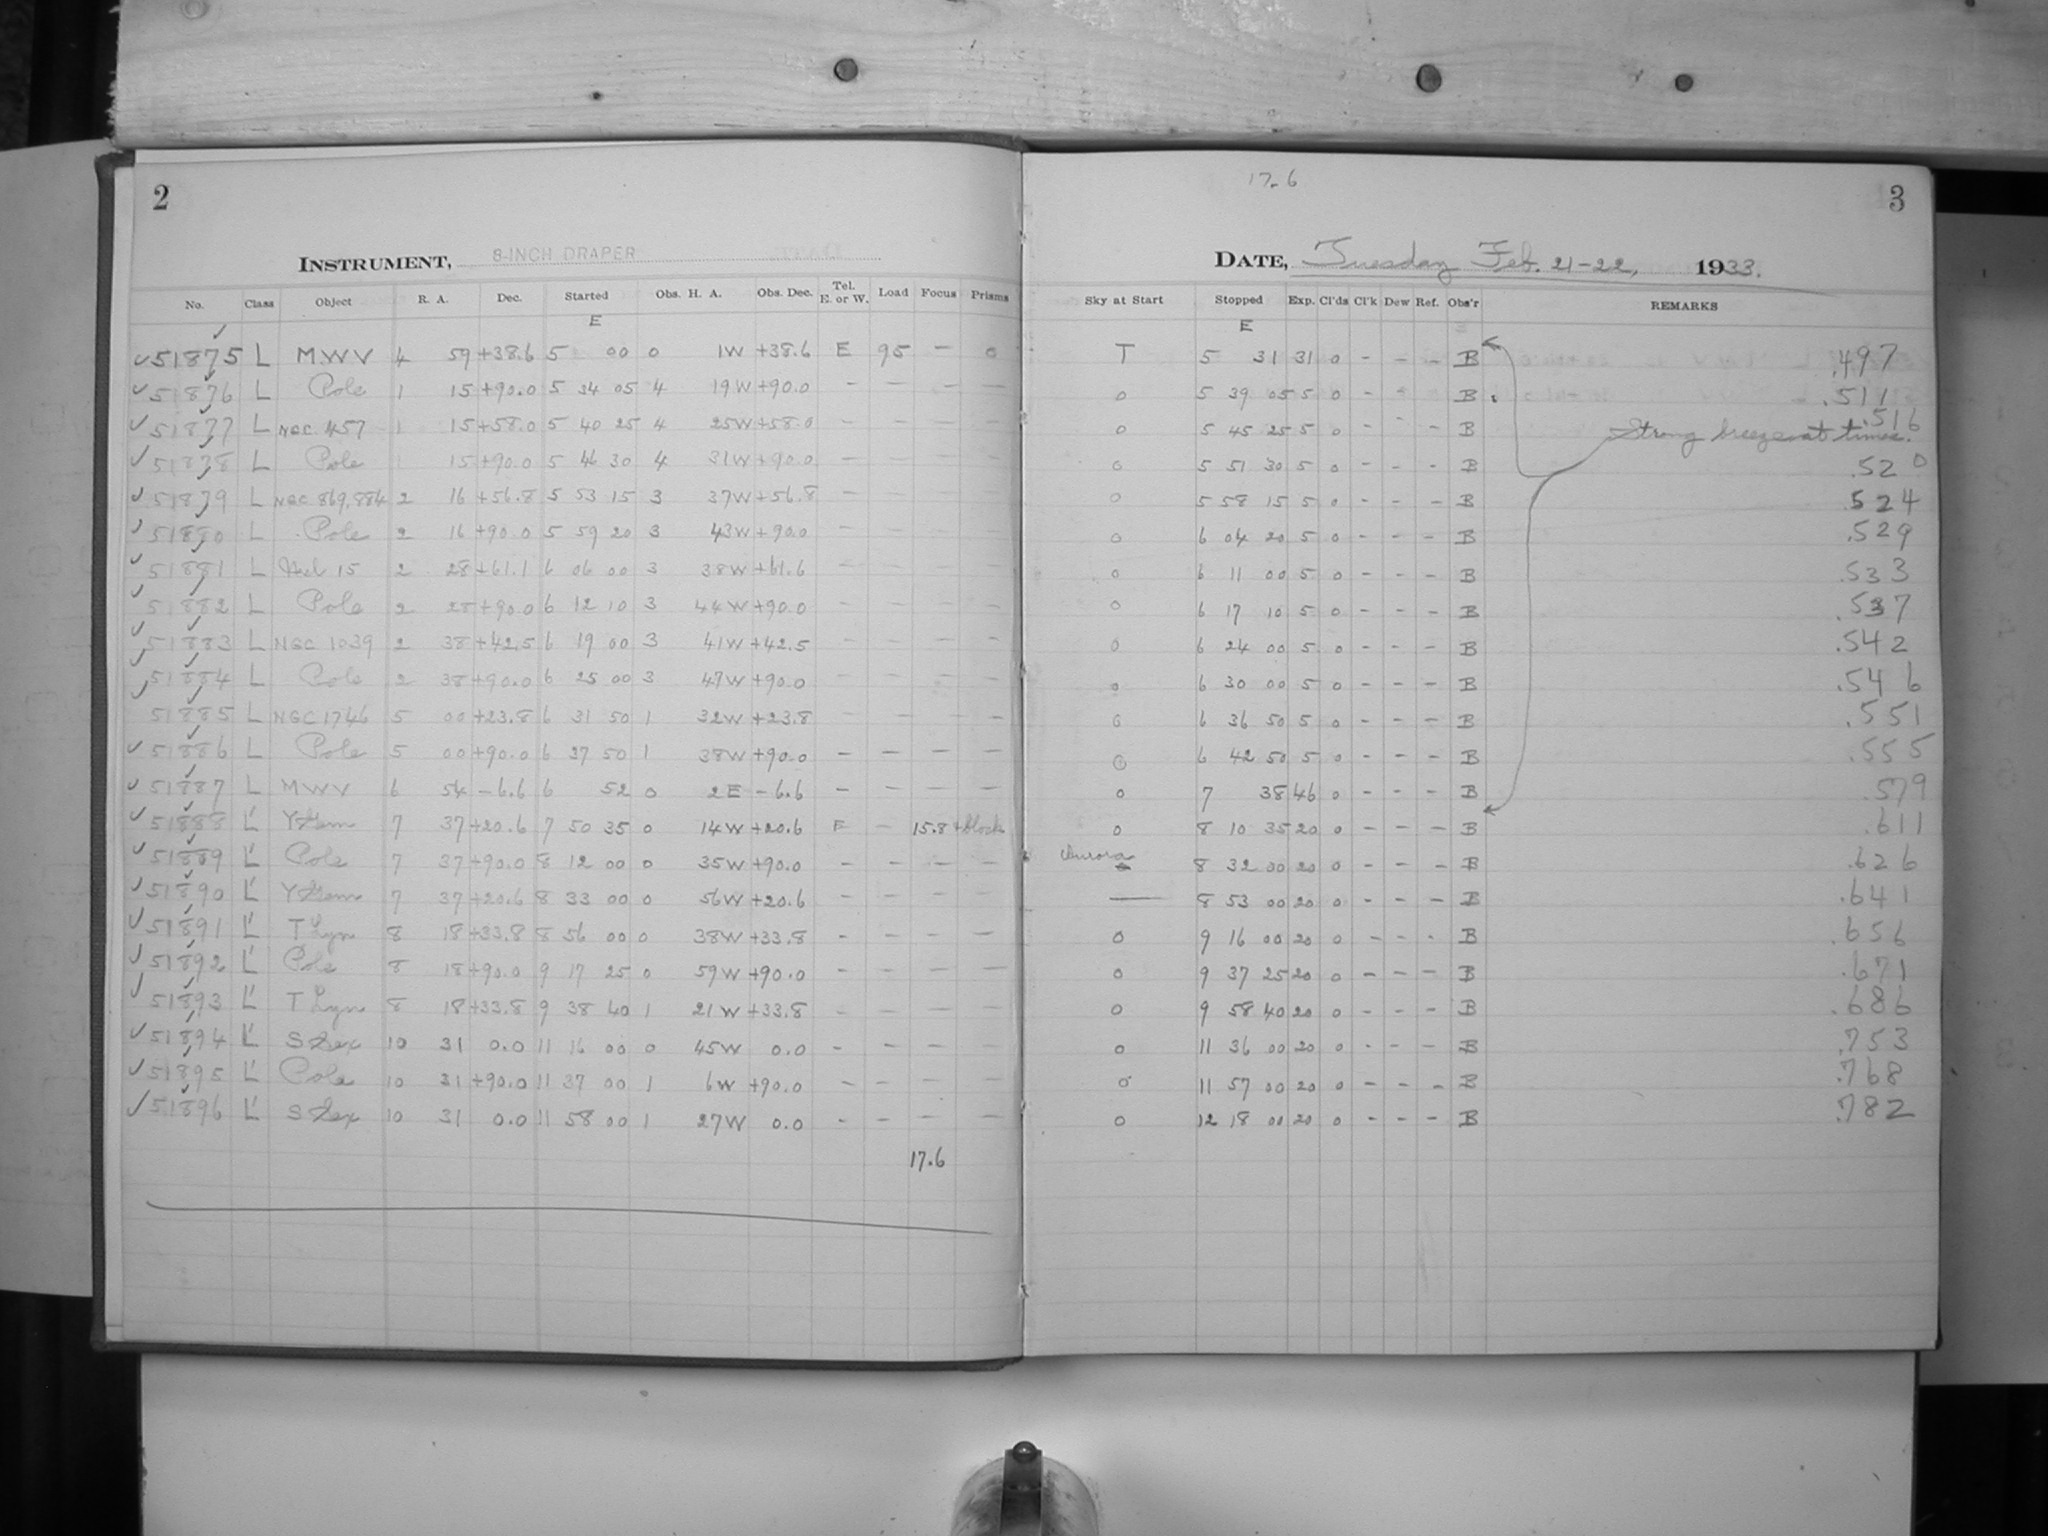 2
INSTRUMENT, 8-INCH DRAPER
No. Class Object R. A. Dec. Started Obs. H. A. Obs. Dec. Tel. E. or W. Load Focus Prisms
E
51875 L MWV 4 59 +38.6 5 00 0 1W +38.6 E 95 — 0
51876 L Pole 1 15 +90.0 5 34 05 4 19W +90.0 — — — —
51877 L NGC 457 1 15 +58.0 5 40 25 4 25W +58.0 — — — —
51878 L Pole 1 15 +90.0 5 46 30 4 31W +90.0 — — — —
51879 L NGC 869,884 2 16 +56.8 5 53 15 3 37W +56.8 — — — —
51880 L Pole 2 16 +90.0 5 59 20 3 43W +90.0 — — — —
51881 L Mel 15 2 28 +61.1 6 06 00 3 38W +61.6 — — — —
51882 L Pole 2 28 +90.0 6 12 10 3 44W +90.0 — — — —
51883 L NGC 1039 2 38 +42.5 6 19 00 3 41W +42.5 — — — —
51884 L Pole 2 38 +90.0 6 25 00 3 47W +90.0 — — — —
51885 L NGC 1746 5 00 +23.8 6 31 50 1 32W +23.8 — — — —
51886 L Pole 5 00 +90.0 6 37 50 1 38W +90.0 — — — —
51887 L MWV 6 54 -6.6 6 52 0 2E -6.6 — — — —
51888 L' Y Gem 7 37 +20.6 7 50 35 0 14W +20.6 E — 15.8 + block
51889 L' Pole 7 37 +90.0 8 12 00 0 35W +90.0 — — — —
51890 L' Y Gem 7 37 +20.6 8 33 00 0 56W +20.6 — — — —
51891 L' T Lyn 8 18 +33.8 8 56 00 0 38W +33.8 — — — —
51892 L' Pole 8 18 +90.0 9 17 25 0 59W +90.0 — — — —
51893 L' T Lyn 8 18 +33.8 9 38 40 1 21W +33.8 — — — —
51894 L' S Sex 10 31 0.0 11 16 00 0 45W 0.0 — — — —
51895 L' Pole 10 31 +90.0 11 37 00 1 6W +90.0 — — — —
51896 L' S Sex 10 31 0.0 11 58 00 1 27W 0.0 — — — —
17.6
17.6
3
DATE, Tuesday Feb. 21-22, 1933.
Sky at Start Stopped Exp. Cl'ds Cl'k Dew Ref. Obs'r REMARKS
E
T 5 31 31 0 - - - B .497
0 5 39 05 5 0 - - - B .511
0 5 45 25 5 0 - - - B .516
Strong breezes at times.
0 5 51 30 5 0 - - - B .520
0 5 58 15 5 0 - - - B .524
0 6 04 20 5 0 - - - B .529
0 6 11 00 5 0 - - - B .533
0 6 17 10 5 0 - - - B .537
0 6 24 00 5 0 - - - B .542
0 6 30 00 5 0 - - - B .546
0 6 36 50 5 0 - - - B .551
0 6 42 50 5 0 - - - B .555
0 7 38 46 0 - - - B .579
0 8 10 35 20 0 - - - B .611
Aurora 8 32 00 20 0 - - - B .626
— 8 53 00 20 0 - - - B .641
0 9 16 00 20 0 - - - B .656
0 9 37 25 20 0 - - - B .671
0 9 58 40 20 0 - - - B .686
0 11 36 00 20 0 - - - B .753
0 11 57 00 20 0 - - - B .768
0 12 18 00 20 0 - - - B .782